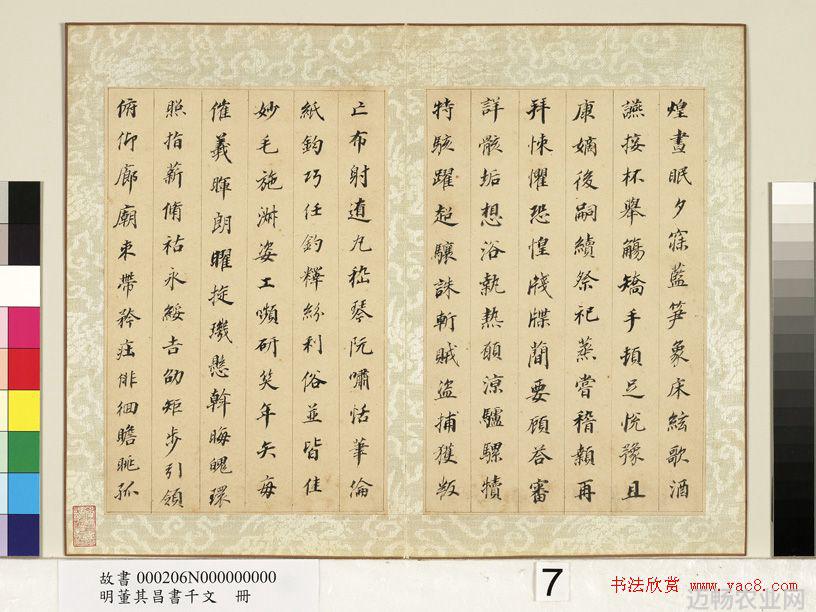 煌晝眠夕寐藍笋象床絃歌酒
讌接杯舉觴矯手頓足悦豫且
康嫡後嗣續祭祀蒸嘗稽顙再
拜悚懼恐惶牋牒簡要顧答審
詳骸垢想浴執熱願涼驢騾犢
特駭躍超驤誅斬賊盜捕獲叛
亡布射遼丸嵇琴阮嘯恬筆倫
紙鈞巧任釣釋紛利俗並皆佳
妙毛施淑姿工嚬研笑年矢每
催羲暉朗曜旋璣懸斡晦魄環
照指薪脩祜永綏吉劭矩步引領
俯仰廊廟束帶矜莊徘徊瞻眺孤
故書 000206N000000000
明董其昌書千文 冊
7
书法欣赏 www.yac8.com
迈畅农业网